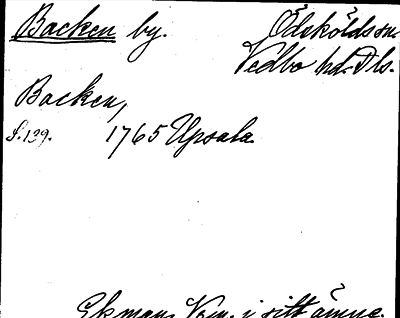 Backen by. Ödsköldssn.
Vedbo hd. Dls.
Backen,
s. 139. 1765 Upsala.
Ekman, Vern. i sitt ämne.